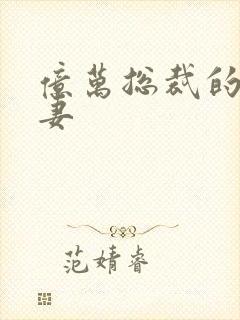 億萬總裁的
妻
范婧睿